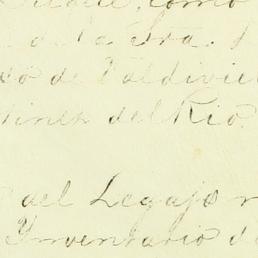 como
de la Sra.
do de Valdivie
tinez del Rio
del Legajo n
Inventario d